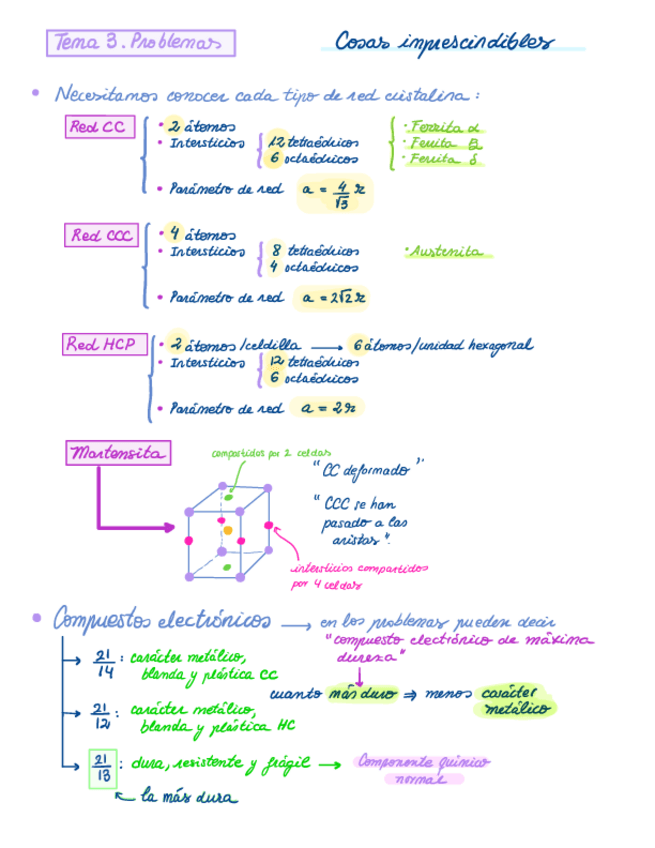 Tema 3. Problemas
Cosas imprescindibles
• Necesitamos conocer cada tipo de red cristalina:
Red CC
• 2 átomos
• Intersticios
12 tetraédricos
6 octaédricos
• Parámetro de red a = 4/√3 r
• Ferrita α
• Ferrita
• Ferrita δ
Red CCC
• 4 átomos
• Intersticios
8 tetraédricos
4 octaédricos
• Parámetro de red a = 2√2 r
• Austenita
Red HCP
• 2 átomos/celdilla → 6 átomos/unidad hexagonal
• Intersticios
12 tetraédricos
6 octaédricos
• Parámetro de red a = 2r
Martensita
compartidos por 2 celdas
"CC deformado"
"CCC se han
pasado a las
aristas".
intersticios compartidos
por 4 celdas
• Compuestos electrónicos → en los problemas pueden decir
"compuesto electrónico de máxima
dureza"
21/14 : carácter metálico,
blanda y plástica CC
cuanto más duro ⇒ menos carácter
metálico
21/12 : carácter metálico,
blanda y plástica HC
21/13 : dura, resistente y frágil → Componente químico
normal
la más dura